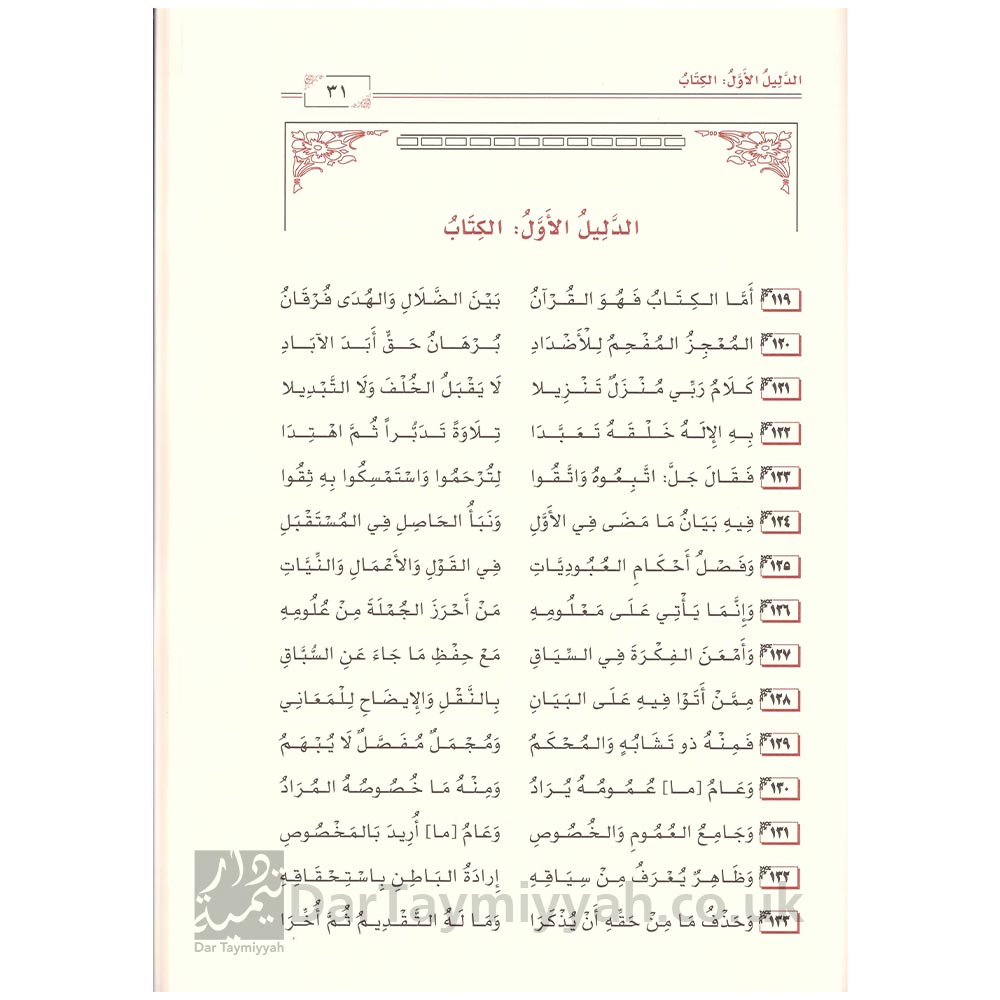 الدَّلِيلُ الأَوَّلُ: الكِتَابُ
٣١
الدَّلِيلُ الأَوَّلُ: الكِتَابُ
١١٩ أَمَّا الكِتَابُ فَهُوَ القُرْآنُ بَيْنَ الضَّلَالِ وَالهُدَى فُرْقَانُ
١٢٠ المُعْجِزُ المُفْحِمُ لِلْأَضْدَادِ بُرْهَانُ حَقٍّ أَبَدَ الآبَادِ
١٢١ كَلَامُ رَبِّي مُنْزَلٌ تَنْزِيلا لَا يَقْبَلُ الخُلْفَ وَلَا التَّبْدِيلا
١٢٢ بِهِ الإِلَهُ خَلْقَهُ تَعَبَّدَا تِلَاوَةً تَدَبُّراً ثُمَّ اهْتِدَا
١٢٣ فَقَالَ جَلَّ: اتَّبِعُوهُ وَاتَّقُوا لِتُرْحَمُوا وَاسْتَمْسِكُوا بِهِ ثِقُوا
١٢٤ فِيهِ بَيَانُ مَا مَضَى فِي الأَوَّلِ وَنَبَأُ الحَاصِلِ فِي المُسْتَقْبَلِ
١٢٥ وَفَصْلُ أَحْكَامِ العُبُودِيَّاتِ فِي القَوْلِ وَالأَعْمَالِ وَالنِّيَّاتِ
١٢٦ وَإِنَّمَا يَأْتِي عَلَى مَعْلُومِهِ مَنْ أَحْرَزَ الجُمْلَةَ مِنْ عُلُومِهِ
١٢٧ وَأَمْعَنَ الفِكْرَةَ فِي السِّيَاقِ مَعْ حِفْظِ مَا جَاءَ عَنِ السُّبَّاقِ
١٢٨ مِمَّنْ أَتَوْا فِيهِ عَلَى البَيَانِ بِالنَّقْلِ وَالإِيضَاحِ لِلْمَعَانِي
١٢٩ فَمِنْهُ ذو تَشَابُهٍ وَالمُحْكَمُ وَمُجْمَلٌ مُفَصَّلٌ لَا يُبْهَمُ
١٣٠ وَعَامُ [ما] عُمُومُهُ يُرَادُ وَمِنْهُ مَا خُصُوصُهُ المُرَادُ
١٣١ وَجَامِعُ العُمُومِ وَالخُصُوصِ وَعَامُ [ما] أُرِيدَ بَالمَخْصُوصِ
١٣٢ وَظَاهِرٌ يُعْرَفُ مِنْ سِيَاقِهِ إِرادَةُ البَاطِنِ بِاسْتِحْقَاقِهِ
١٣٣ وَحَذْفُ مَا مِنْ حَقِّهِ أَنْ يُذْكَرَا وَمَا لَهُ التَّقْدِيمُ ثُمَّ أُخِّرَا
دار تيمية
Dar Taymiyyah
DarTaymiyyah.co.uk